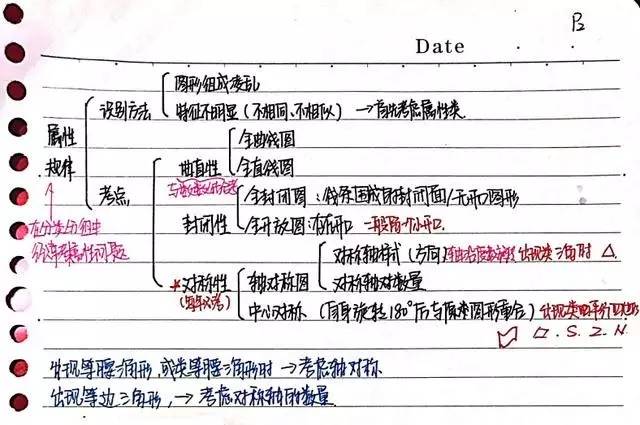 Date
图形组成凌乱
识别方法
特征不明显(不相同、不相似) →首先考虑属性类
属性
规律
全曲线图
曲直性
全直线图
考点
全封闭图:线条围成的封闭面/无开口图形
封闭性
全开放图:有开口 一般留一个小开口.
在分类分组中
对称轴样式(方向) 出现类三角时 △.
轴对称图
*对称性
对称轴对数量
(每年必考)
中心对称 (自身旋转180°后与原来图形重合)
▱.S.Z.N.
出现等腰三角形,或类等腰三角形时 →考虑轴对称
出现等边三角形, →考虑对称轴的数量